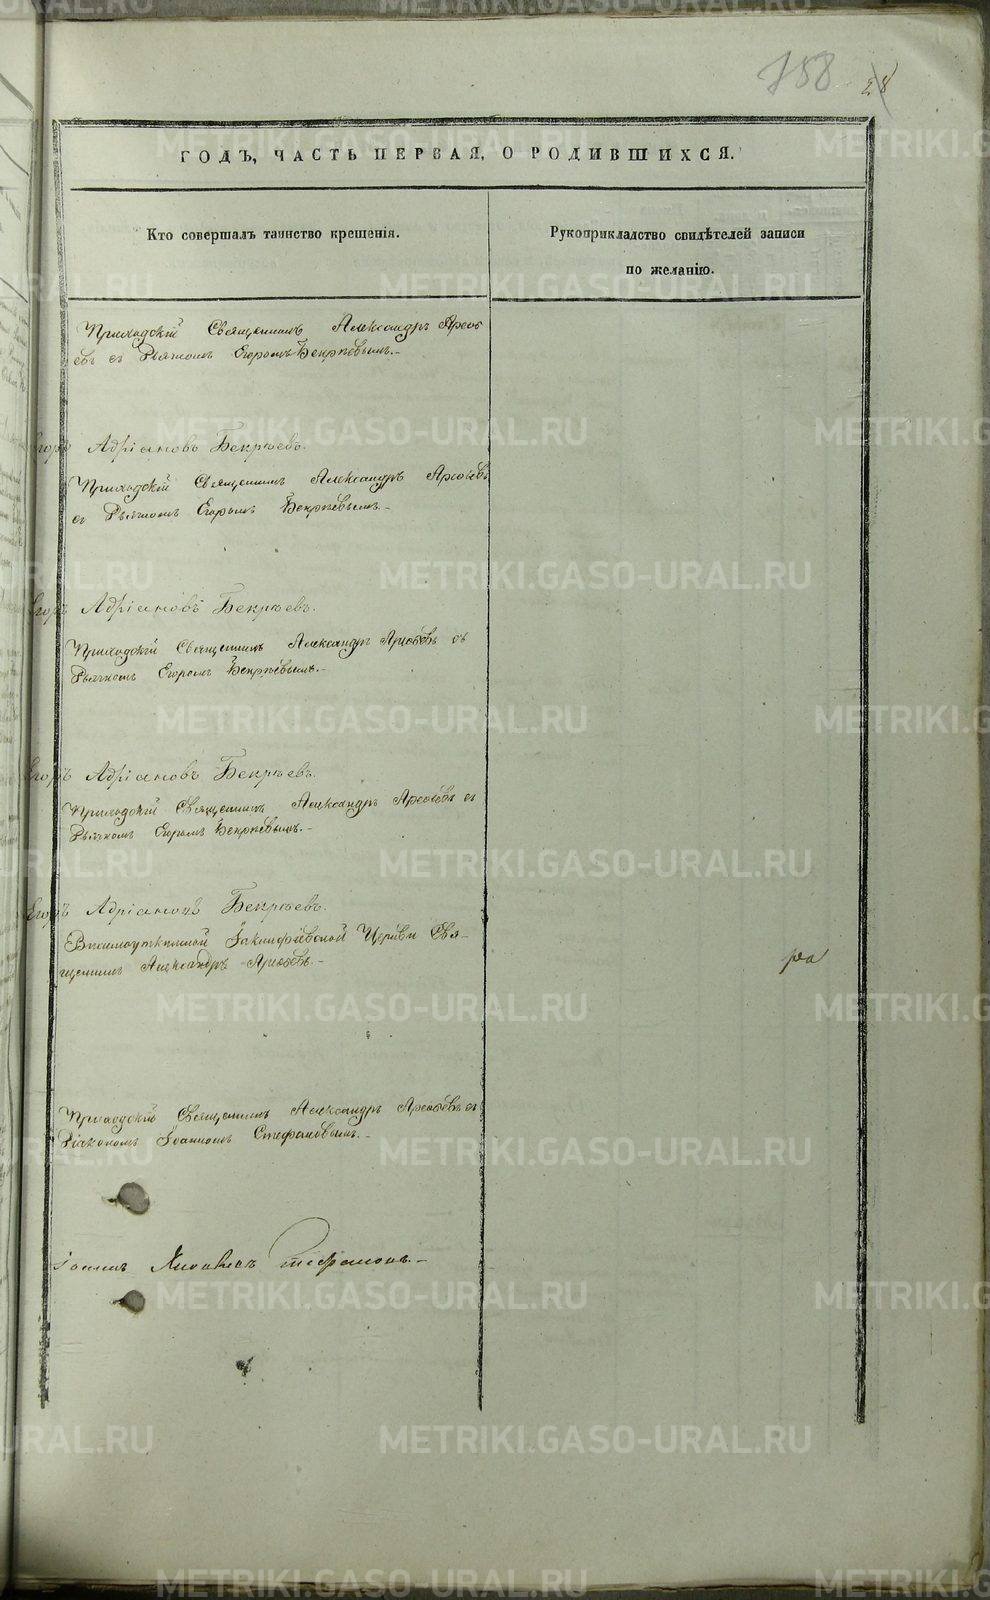 758 28
ГОДЪ, ЧАСТЬ ПЕРВАЯ, О РОДИВШИХСЯ.
Кто совершалъ таинство крещенія.
Рукоприкладство свидѣтелей записи
по желанію.
Приходскій Священникъ Александръ
съ Дьячкомъ Егоромъ Бекрѣевымъ.
Егоръ Адріановъ Бекрѣевъ.
Приходскій Священникъ Александръ
съ Дьячкомъ Егоромъ Бекрѣевымъ.
Егоръ Адріановъ Бекрѣевъ.
Приходскій Священникъ Александръ съ
Дьячкомъ Егоромъ Бекрѣевымъ.
Егоръ Адріановъ Бекрѣевъ.
Приходскій Священникъ Александръ съ
Дьячкомъ Егоромъ Бекрѣевымъ.
Егоръ Адріановъ Бекрѣевъ.
Церкви Свя-
щенникъ Александръ
Приходскій Священникъ Александръ съ
Діакономъ Іоанномъ Стефановымъ.
Іоаннъ Стефановъ.
METRIKI.GASO-URAL.RU